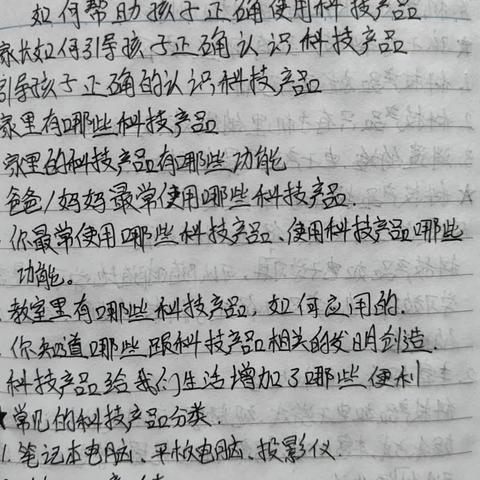 如何帮助孩子正确使用科技产品
家长如何引导孩子正确认识科技产品
引导孩子正确的认识科技产品
家里有哪些科技产品
家里的科技产品有哪些功能
爸爸/妈妈最常使用哪些科技产品.
你最常使用哪些科技产品、使用科技产品哪些
功能。
教室里有哪些科技产品,如何应用的.
你知道哪些跟科技产品相关的发明创造.
科技产品给我们生活增加了哪些便利
常见的科技产品分类.
1.笔记本电脑、平板电脑、投影仪.